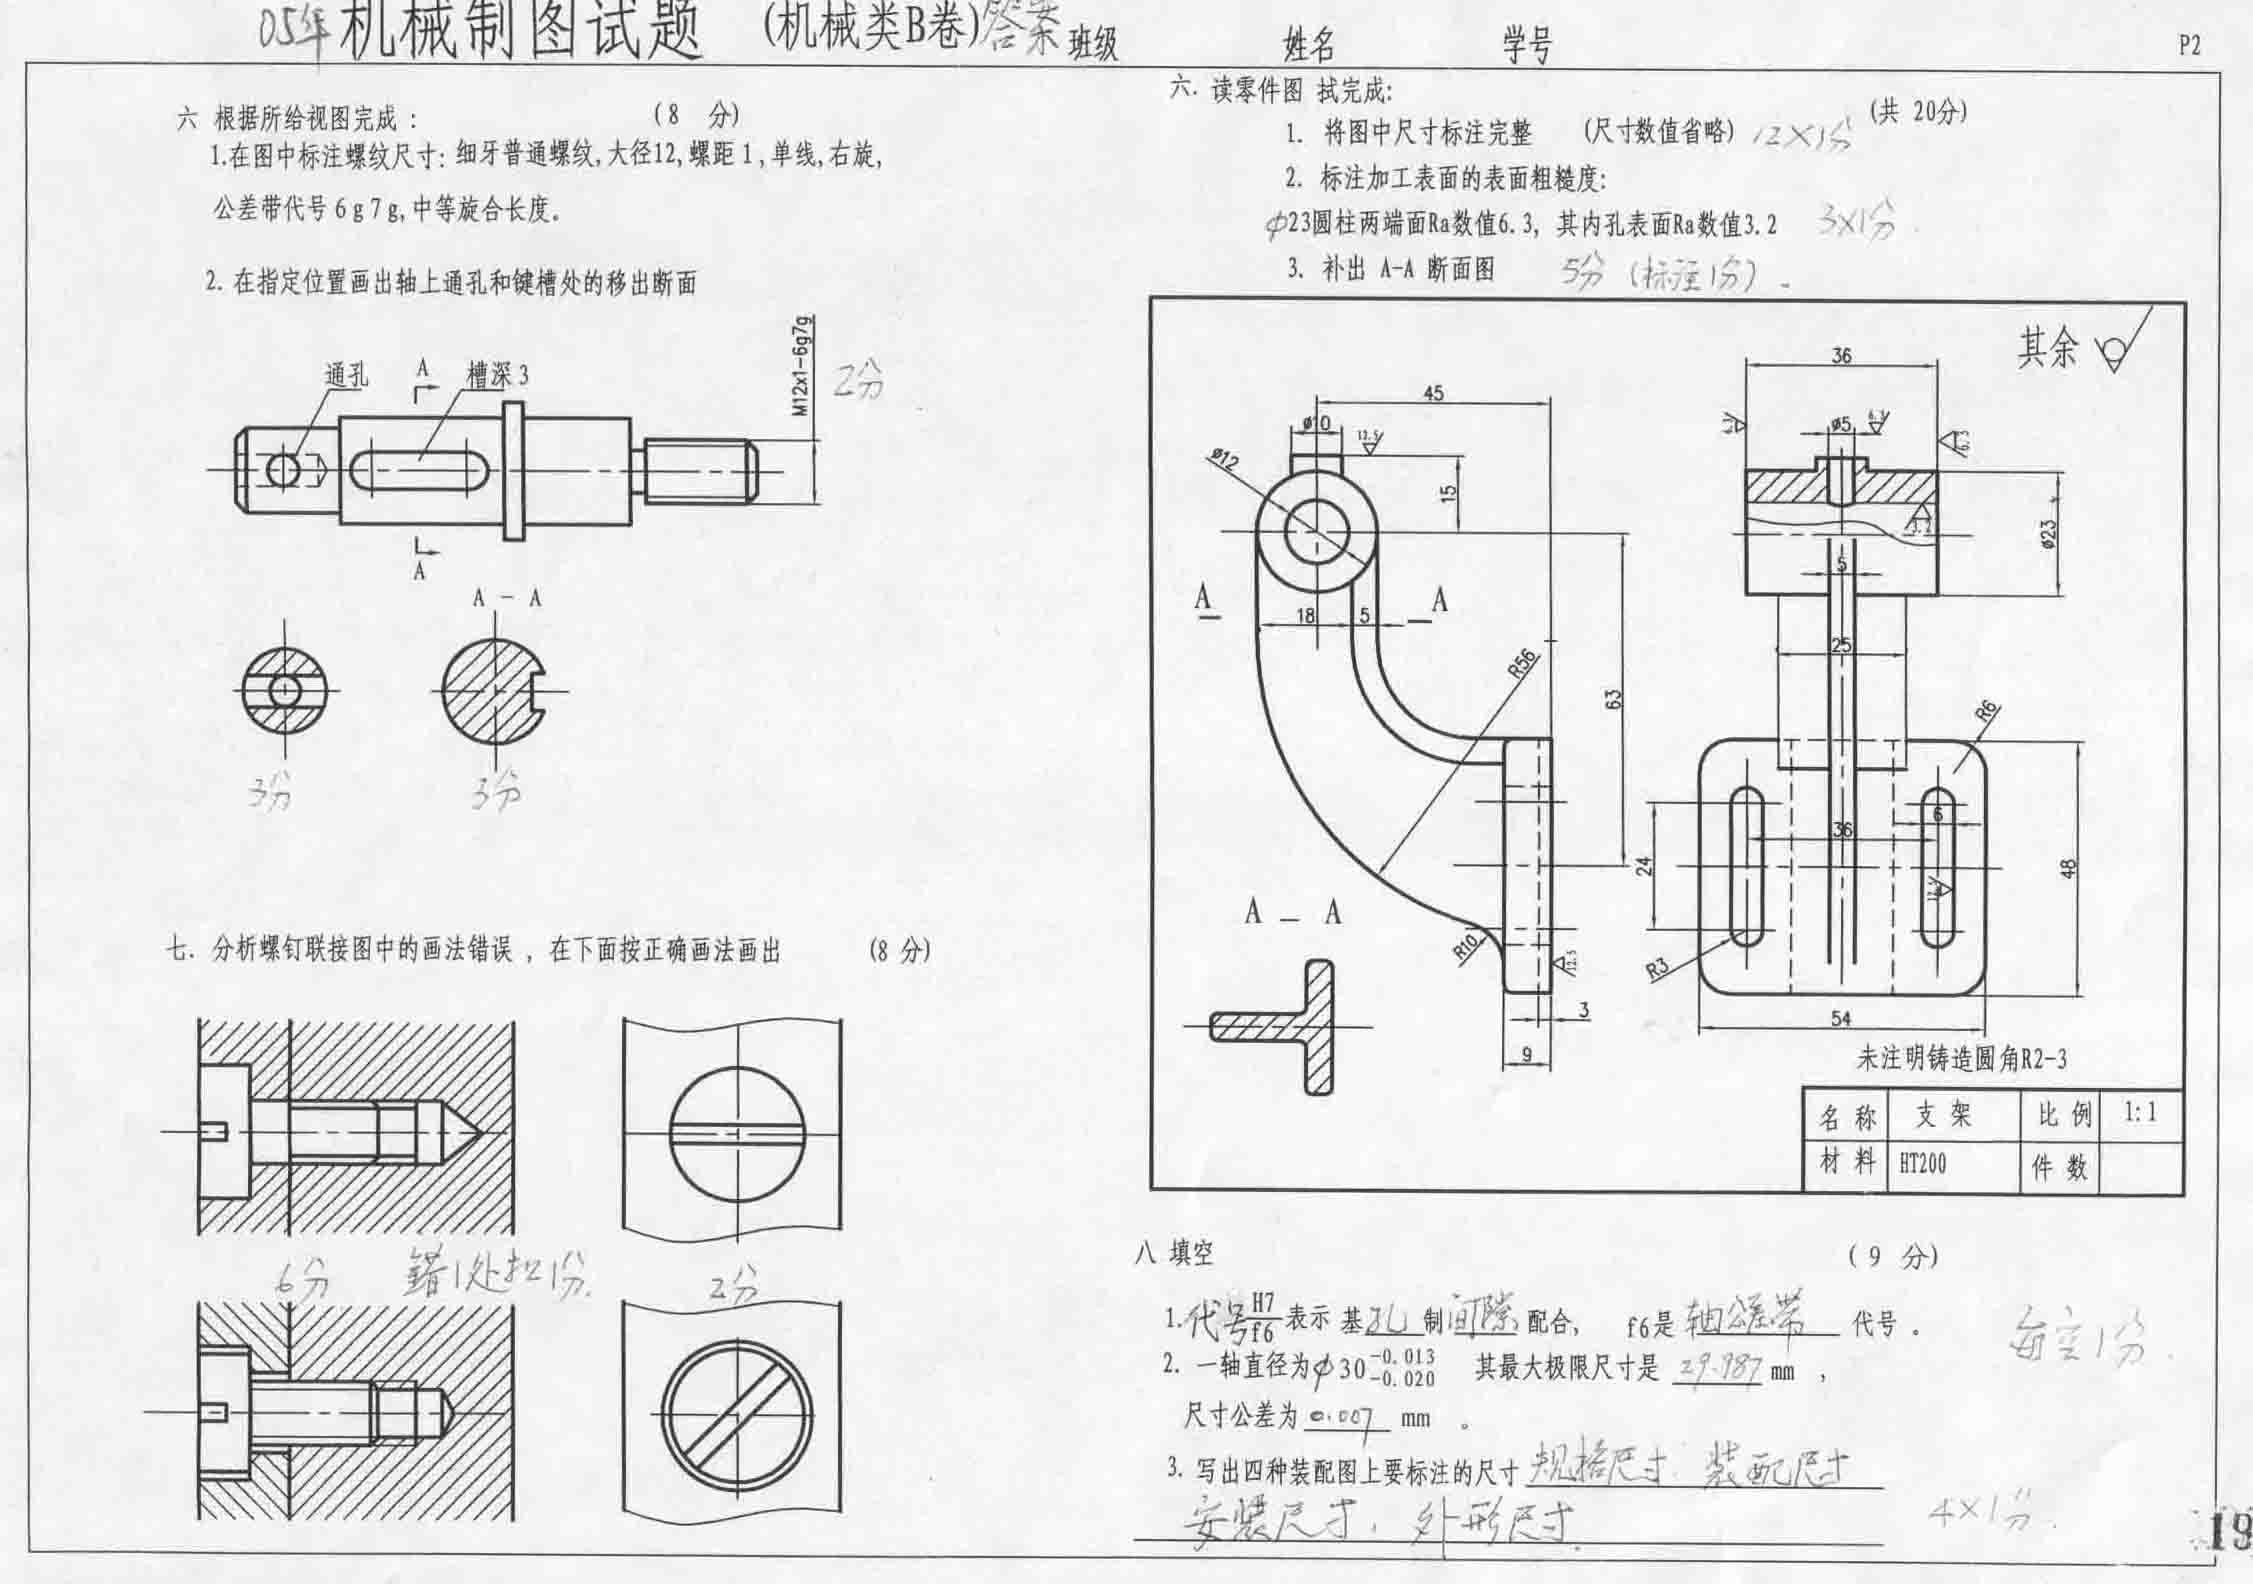 05年 机械制图试题 (机械类B卷) 答案 班级 姓名 学号 P2
六 根据所给视图完成 : (8 分)
1.在图中标注螺纹尺寸: 细牙普通螺纹,大径12,螺距1,单线,右旋,
公差带代号6g7g,中等旋合长度。
2. 在指定位置画出轴上通孔和键槽处的移出断面
通孔
A
槽深3
M12x1-6g7g
2分
A
A - A
3分
3分
七. 分析螺钉联接图中的画法错误 , 在下面按正确画法画出 (8 分)
6分 錯1处扣1分. 2分
六. 读零件图 拭完成:
(共 20分)
1. 将图中尺寸标注完整 (尺寸数值省略) 12×1分
2. 标注加工表面的表面粗糙度:
φ23圆柱两端面Ra数值6.3, 其内孔表面Ra数值3.2 3×1分.
3. 补出 A-A 断面图 5分 (标注1分).
其余
36
45
ø10
12.5
ø12
15
ø5
6.3
3.2
ø23
5
A
18
5
A
25
R56
63
R6
36
6
24
48
A - A
R10
12.5
R3
3
9
54
未注明铸造圆角R2-3
名 称 支 架 比 例 1:1
材 料 HT200 件 数
八 填空 (9 分)
1.代号H7/f6表示 基孔制间隙配合, f6是 轴公差带 代号 。
每空1分.
2. 一轴直径为φ30 -0.013 -0.020 其最大极限尺寸是 29.987 mm ,
尺寸公差为 0.007 mm 。
3. 写出四种装配图上要标注的尺寸 规格尺寸. 装配尺寸
安装尺寸, 外形尺寸. 4×1分.
19